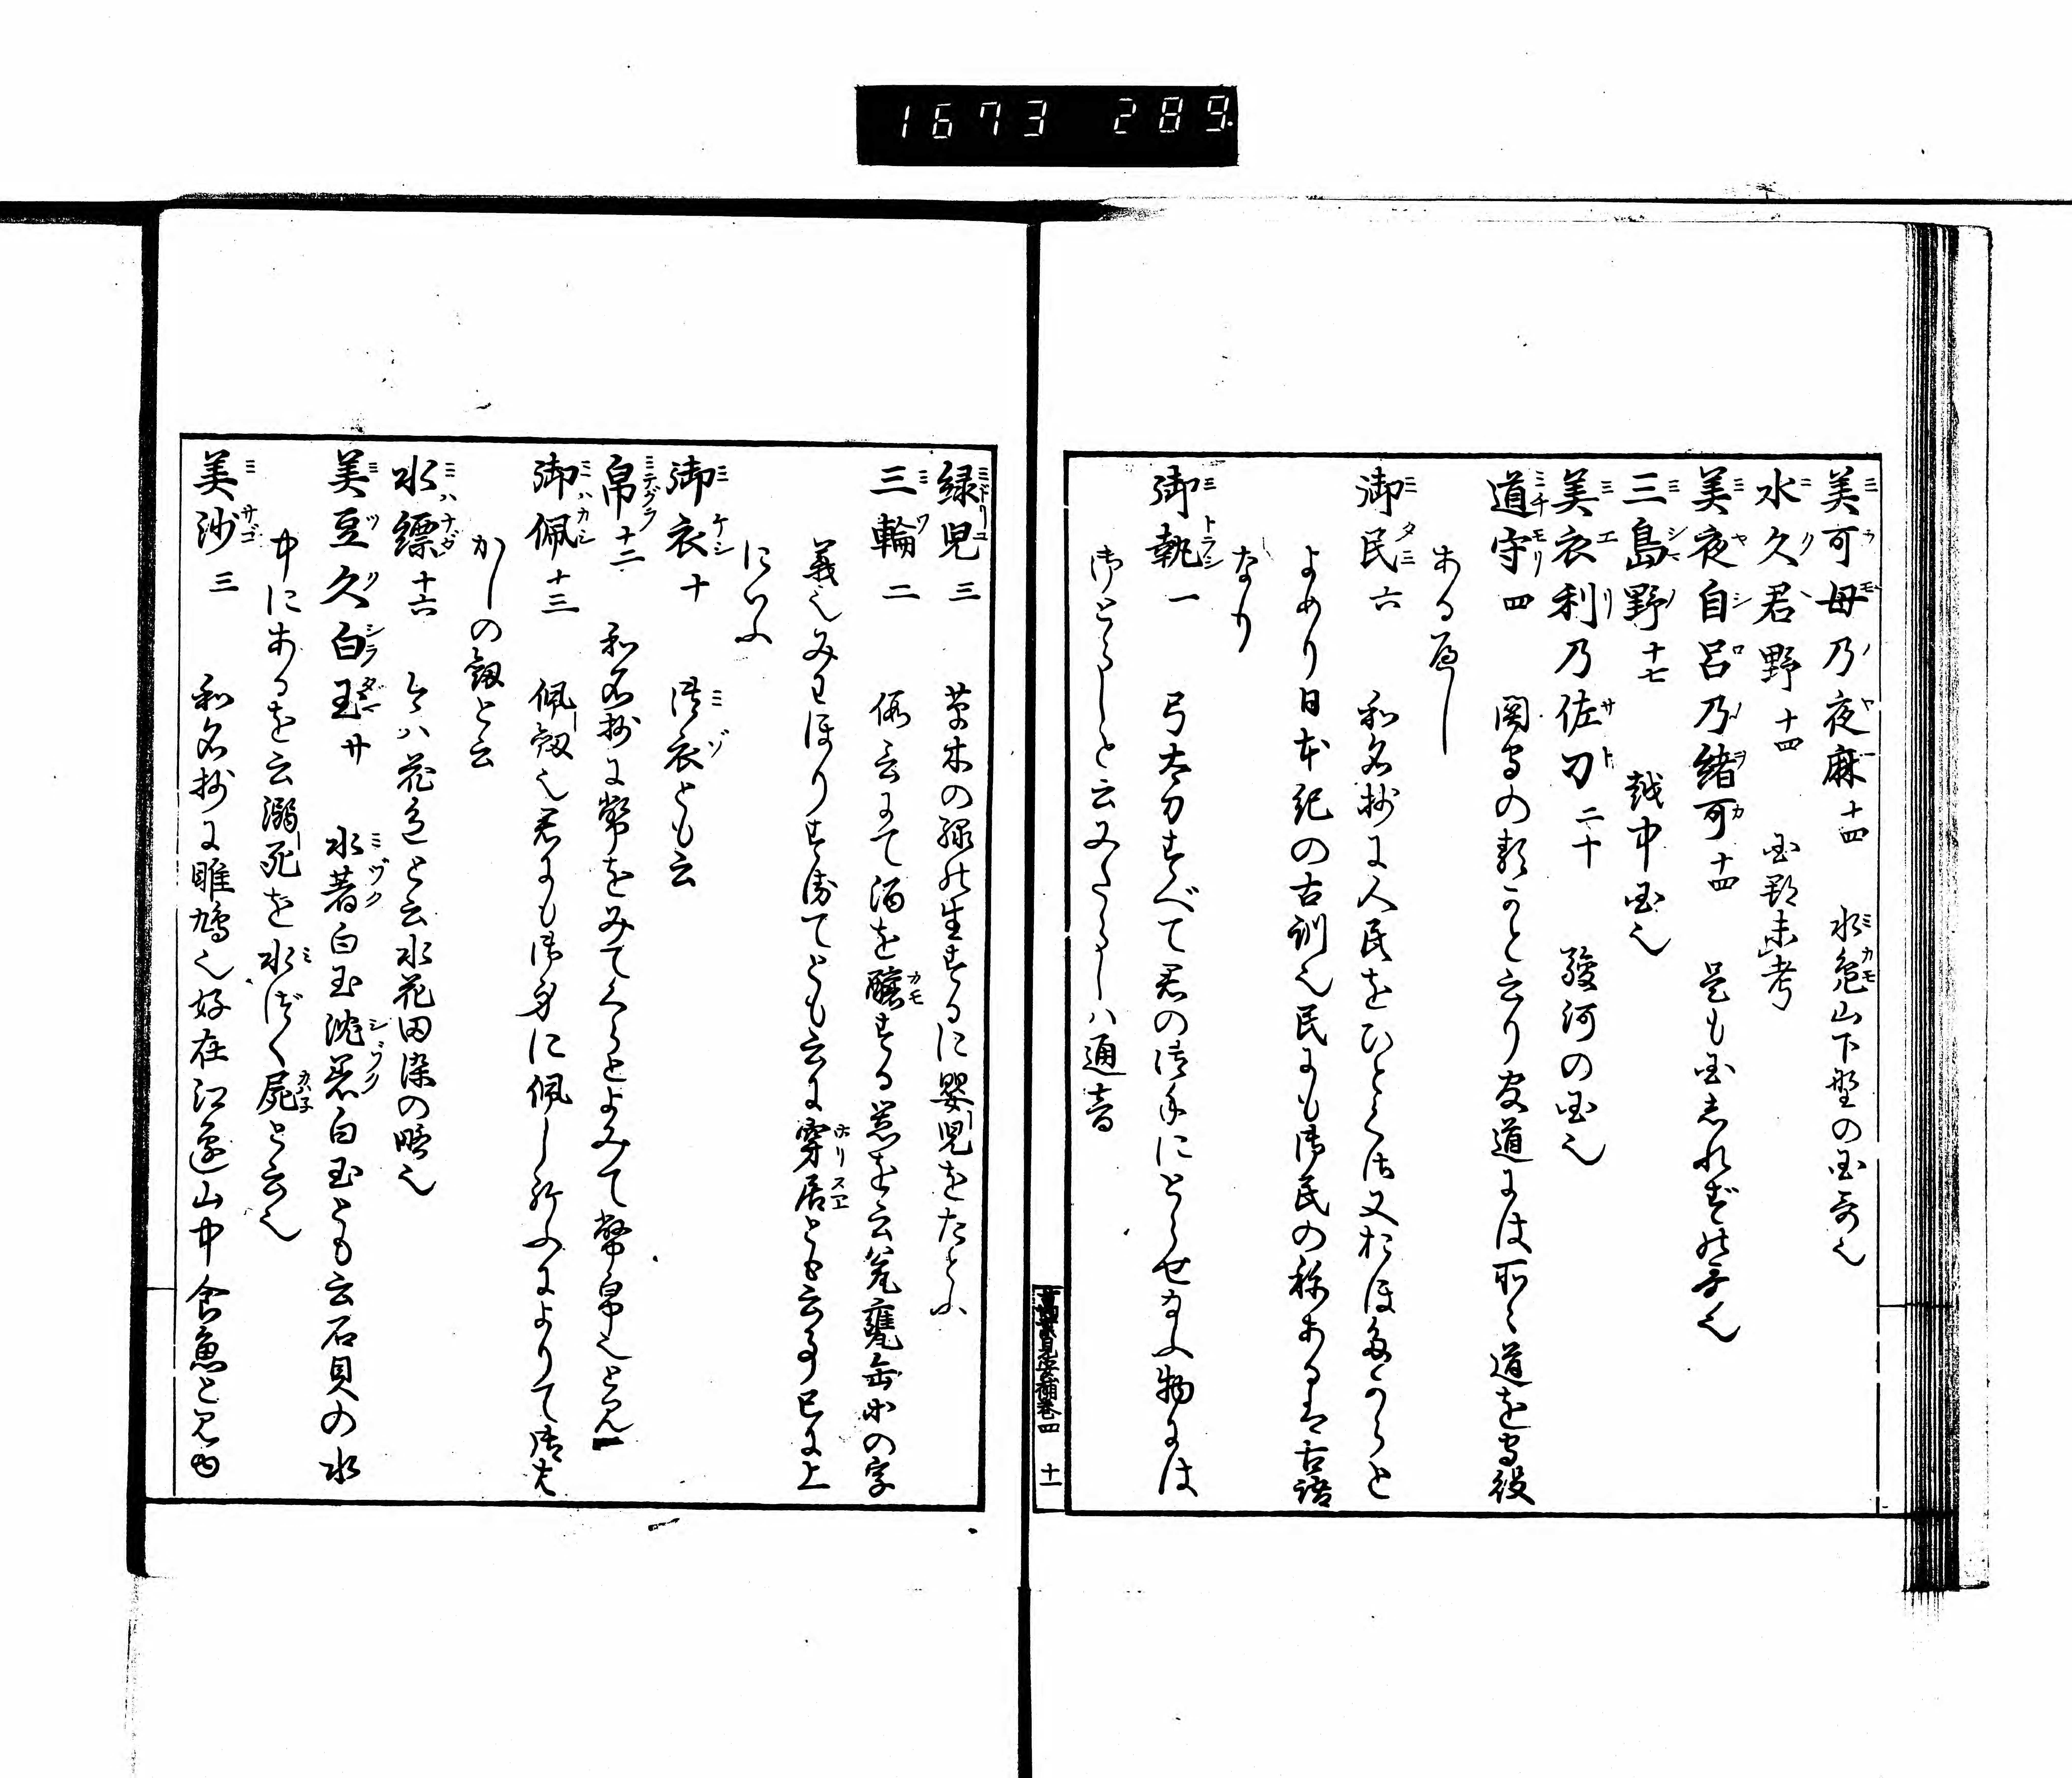 1673 289
美可母乃夜麻 十四 水鳧山下野の国哥也
水久君野 十四 国郡未考
美夜自呂乃緒可 十四 是も国志れぬ
三島野 十七 越中国也
美衣利乃佐刀 二十 駿河の国也
道守 四 関守の類かと云り安道には所々道を守役
ある歟
御民 六 和名抄に人民をひとくさ又おほむたからと
よめり日本紀の古訓也民にも御民の称ある古語
なり
御執 一 弓太刀すべて君の御手にとらせ玉ふ物には
御とらしと云みたらしハ通音
緑児 三 草木の緑の生するに嬰児をたとふ
三輪 二 俗云みて酒を醸する瓮を云瓮甕缶の字
義也みわほりすゑてとも云に穿居とも云事已に上
にいふ
御衣 十 御衣とも云
帛 十二 和名抄に幣をみてくらとよみて幣帛也と見
御佩 十三 佩劔也君にも御身に佩し給ふによりて御は
かしの劔と云
水縹 十六 今ハ花色と云水花田染の略也
美豆久白玉 廿 水著白玉沈著白玉とも云石貝の水
中にあるを云溺死を水づく屍と云也
美沙 三 和名抄に雎鳩也好在江邊山中食魚と見ゆ
巻四 十一